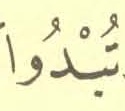 تُبْدُوا